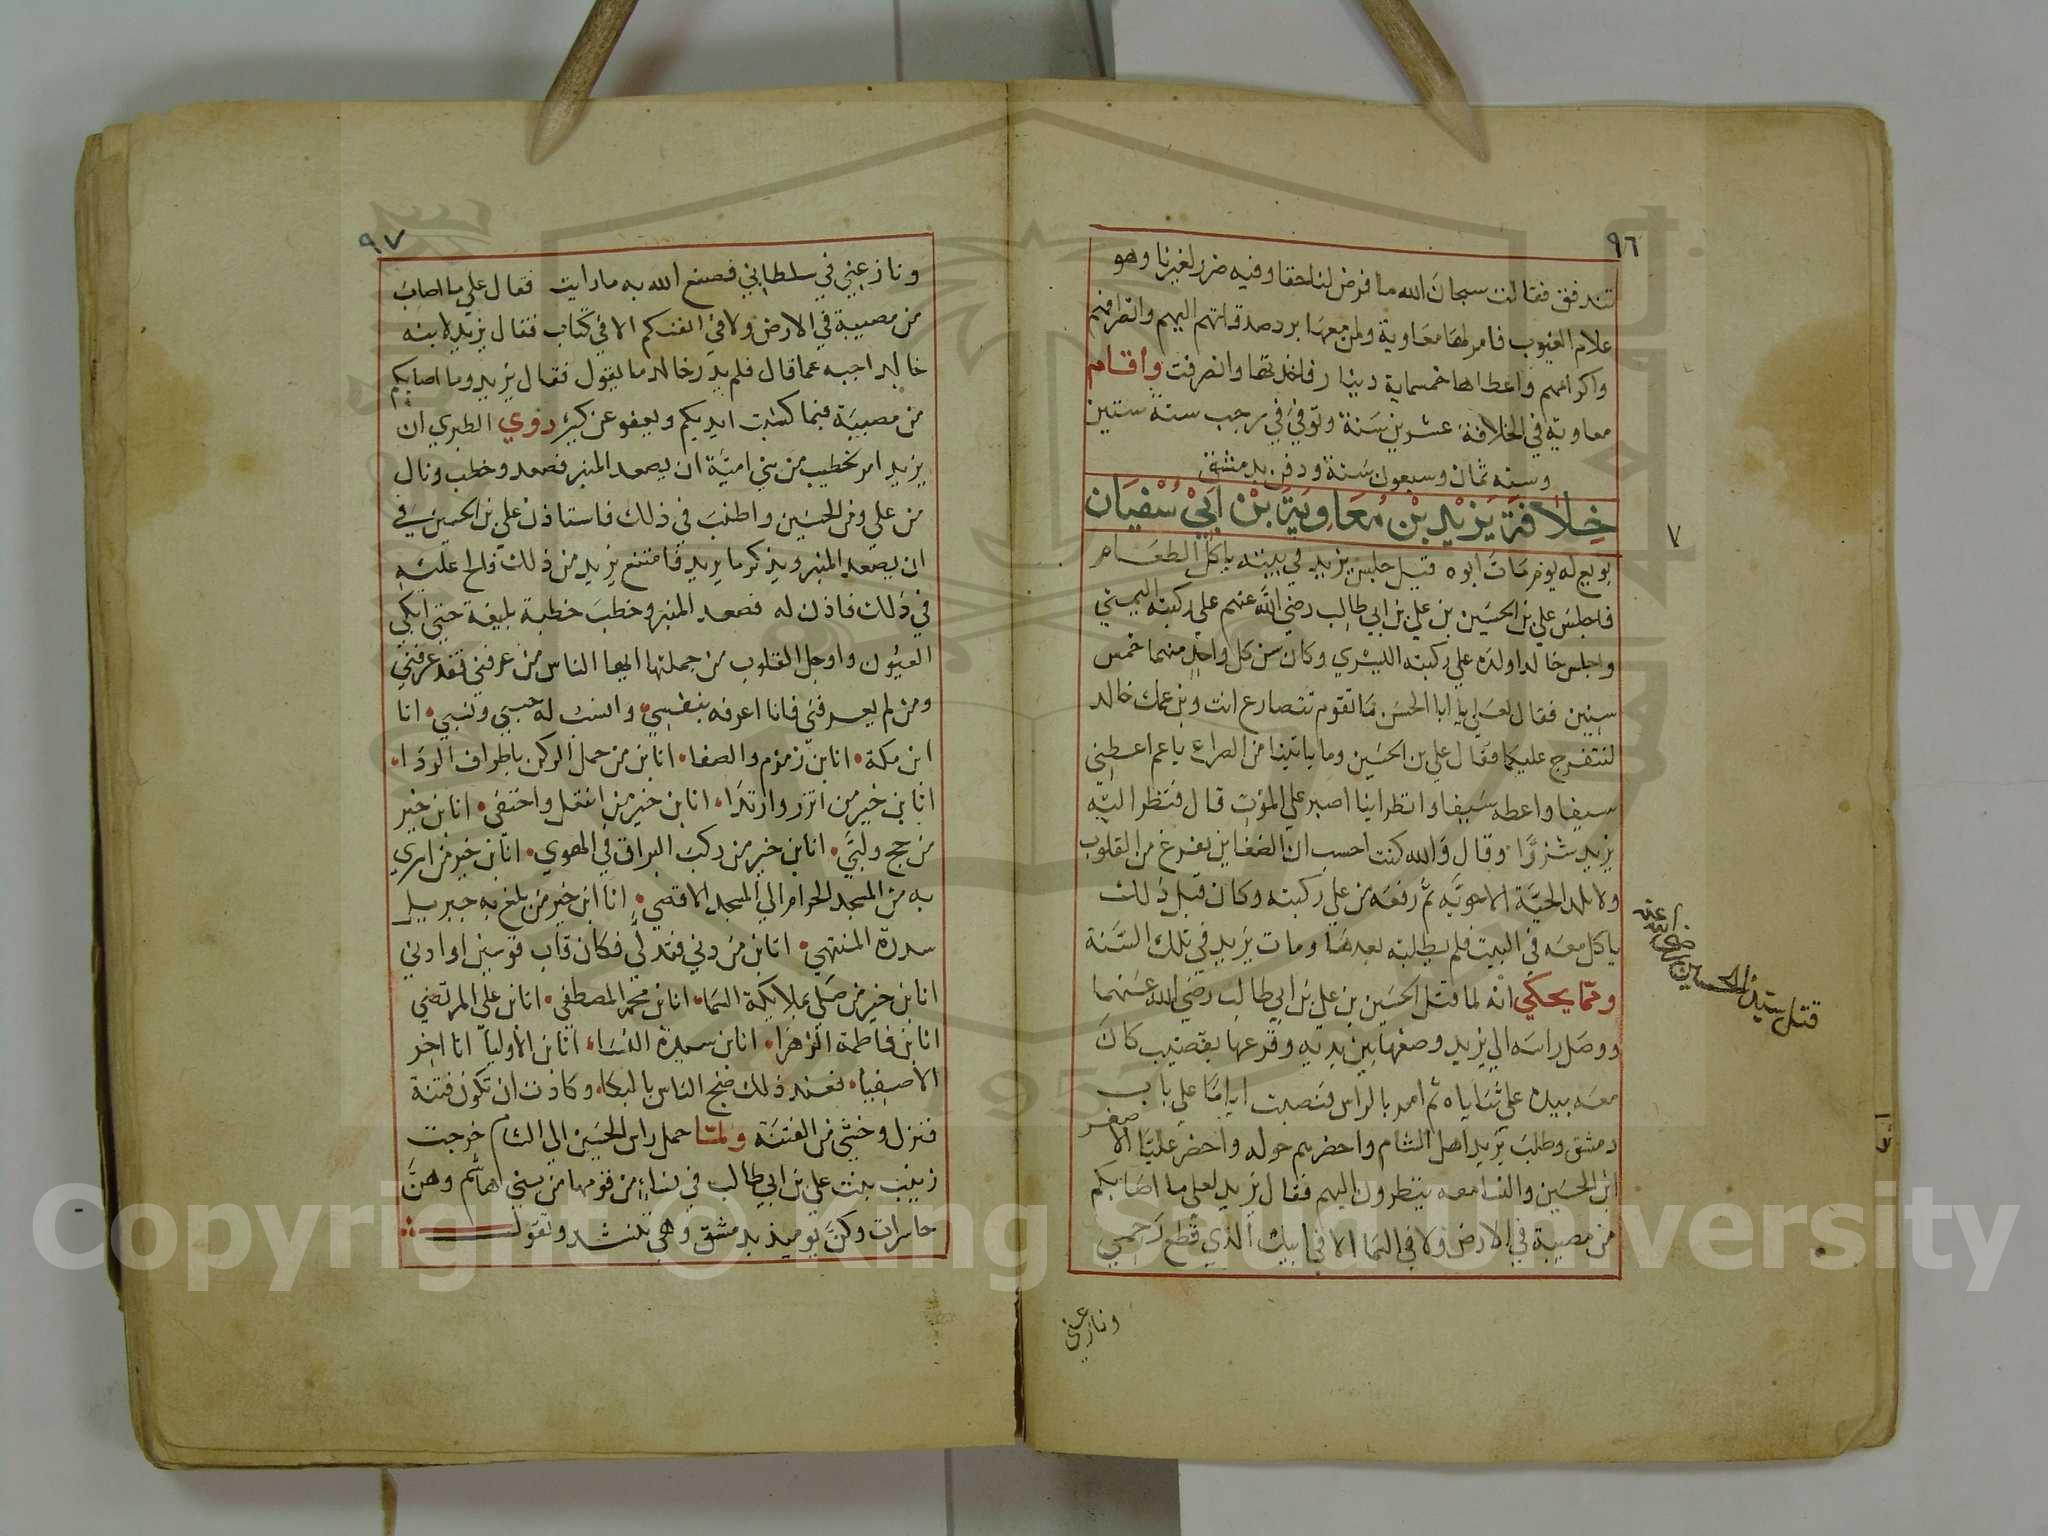 ٩٦
تندفق فقالت سبحان الله ما فرض لنا حقا وفيه ضرر لغيرنا وهو
علام الغيوب فامر لها معاوية ولمن معها برد صدقاتهم اليهم وانظرهم
واكرامهم واعطاها خمسماية دينار فاخذتها وانصرفت وأقام
معاوية في الخلافة عشرين سنة وتوفي في رجب سنة ستين
وسنه ثمان وسبعون سنة ودفن بدمشق
خلافة يزيد بن معاوية بن ابي سفيان
٧
بويع له يوم مات ابوه قيل جلس يزيد في بيته ياكل الطعام
فاجلس علي بن الحسين بن علي بن ابي طالب رضي الله عنهم علي ركبته اليميني
واجلس خالدا ولده علي ركبته اليسري وكان سن كل واحد منهما خمس
سنين فقال لعلي يا ابا الحسن ما تقوم تتصارع انت وبن عمك خالد
لنتفرج عليكما فقال علي بن الحسين وما ياتينا من الصراع يا عم اعطيني
سيفا واعطه سيفا وانظر اينا اصبر علي الموت قال فنظر اليه
يزيد شزرًا وقال والله كنت احسب ان الضغاين تفرغ من القلوب
ولا تلد الحية الا حويه ثم رفعه من علي ركبته وكان قبل ذلك
ياكل معه في البيت فلم يطلبه بعدها ومات يزيد في تلك السنة
ومما يحكي انه لما قتل الحسين بن علي بن ابي طالب رضي الله عنهما
ووصل راسه الي يزيد وضعها بين يديه وقرعها بقضيب كان
معه بيده علي ثناياه ثم امر بالراس فنصبت اياما علي باب
دمشق وطلب يزيد اهل الشام واحضرهم حوله واحضر عليا الاصغر
ابن الحسين والنسا معه ينظرون اليهم فقال يزيد لعلي ما اصابكم
من مصيبة في الارض ولا في السما الا في ابيك الذي قطع رحمي
ونازعني
قتل سيدنا الحسين رضي الله عنه
٩٧
ونازعيني في سلطاني فصنع الله به ما رايت فقال علي ما اصاب
من مصيبة في الارض ولا في انفسكم الا في كتاب فقال يزيد لابنه
خالد اجبه عما قال فلم يدر خالد ما يقول فقال يزيد وما اصابكم
من مصيبة فبما كسبت ايديكم ويعفو عن كثير روي الطبري ان
يزيد امر بخطيب من بني امية ان يصعد المنبر فصعد وخطب ونال
من علي ومن الحسين واطنب في ذلك فاستاذن علي بن الحسين في
ان يصعد المنبر ويذكر ما يريد فامتنع يزيد من ذلك فالح عليه
في ذلك فاذن له فصعد المنبر وخطب خطبة بليغة حتي ابكي
العيون واوجل القلوب من جملتها ايها الناس من عرفني فقد عرفني
ومن لم يعرفني فانا اعرفه بنفسي وانسب له حسبي ونسبي انا
ابن مكة انا بن زمزم والصفا انا بن من حمل الركن باطراف الردا
انا بن خير من اتزر وارتدا انا بن خير من انتعل واحتفي انا بن خير
من حج ولبي انا بن خير من ركب البراق في الهوي انا بن خير من اسري
به من المسجد الحرام الي المسجد الاقصي انا ابن خير من بلغ به جبريل
سدرة المنتهي انا بن من دني فتدلي فكان قاب قوسين او ادني
انا بن خير من صلي بملايكة السما انا بن محمد المصطفي انا بن علي المرتضي
انا بن فاطمة الزهرا انا بن سيدة النساء انا بن الاوليا انا اخر
الاصفيا فعند ذلك ضج الناس بالبكا وكادت ان تكون فتنة
فنزل وخشي من الفتنة ولما حمل راس الحسين الي الشام خرجت
زينب بنت علي بن ابي طالب في نساء من قومها من بني هاشم وهن
حاسرات وكن يوميذ بدمشق وهي تنشد وتقول
Copyright © King Saud University